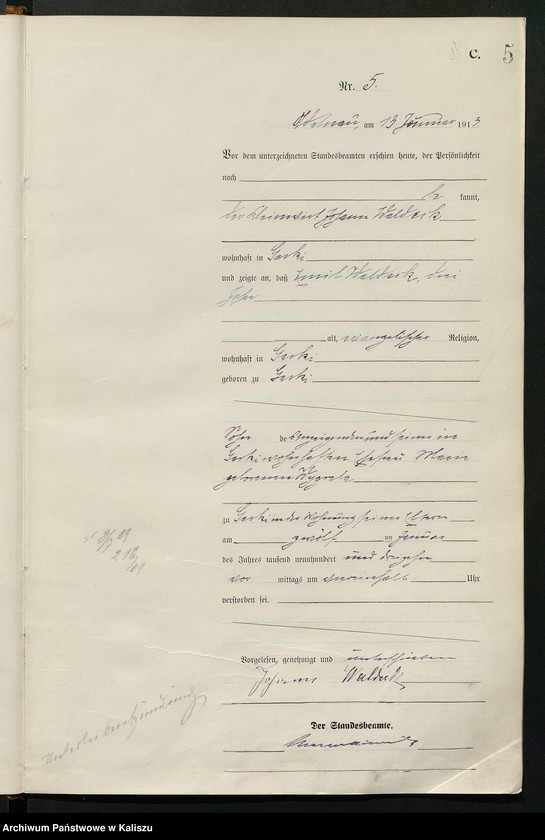 C. 5
Nr. 5.
Adelnau, am 13 Januar 1913
Vor dem unterzeichneten Standesbeamten erschien heute, der Persönlichkeit
nach
be kannt,
der Johann Waldeck
wohnhaft in Gorki
und zeigte an, daß Emil Waldeck, drei
Jahr
alt, evangelischer Religion,
wohnhaft in Gorki
geboren zu Gorki
Sohn des Anzeigenden und seiner in
Gorki wohnhaften Ehefrau
geborenen
zu Gorki in der Wohnung seiner Eltern
am zwölf ten Januar
des Jahres tausend neunhundert und dreizehn
vor mittags um Uhr
verstorben sei.
Vorgelesen, genehmigt und unterschrieben
Johann Waldeck
Der Standesbeamte.
Unterleibsentzündung
Archiwum Państwowe w Kaliszu